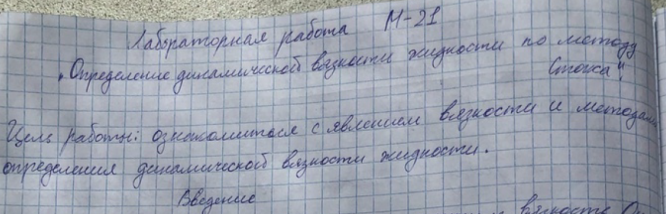 Лабораторная работа М-21
„Определение динамической вязкости жидкости по методу
Стокса".
Цель работы: ознакомиться с явлением вязкости и методами
определения динамической вязкости жидкости.
Введение
вязкость